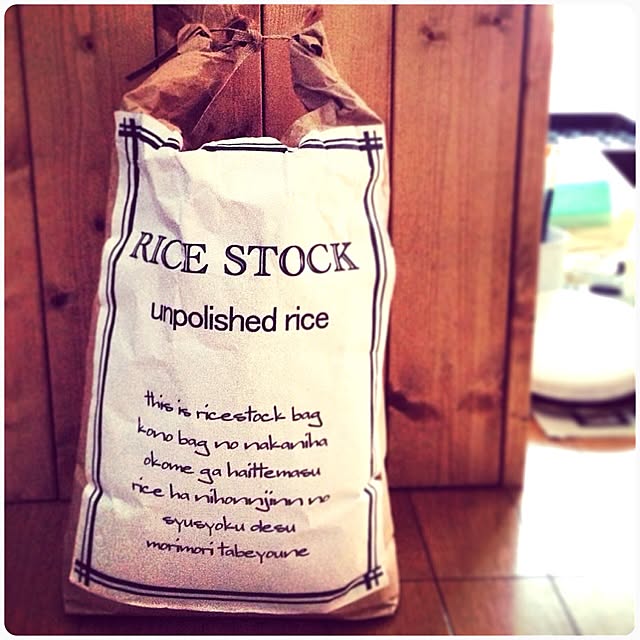 RICE STOCK
unpolished rice
this is ricestock bag
kono bag no nakaniha
okome ga haittemasu
rice ha nihonnjinn no
syusyoku desu
morimori tabeyoune